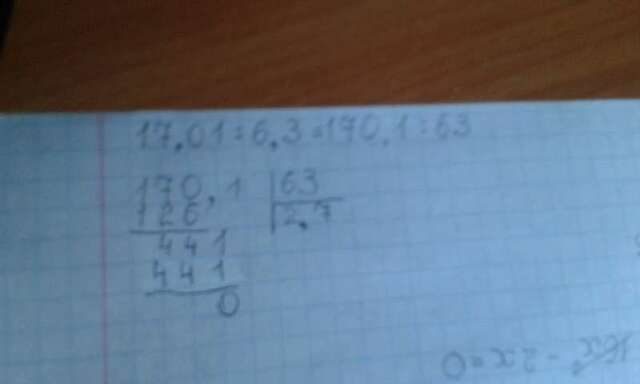 17,01:6,3=170,1:63
170,1 63
126 2,7
441
441
0